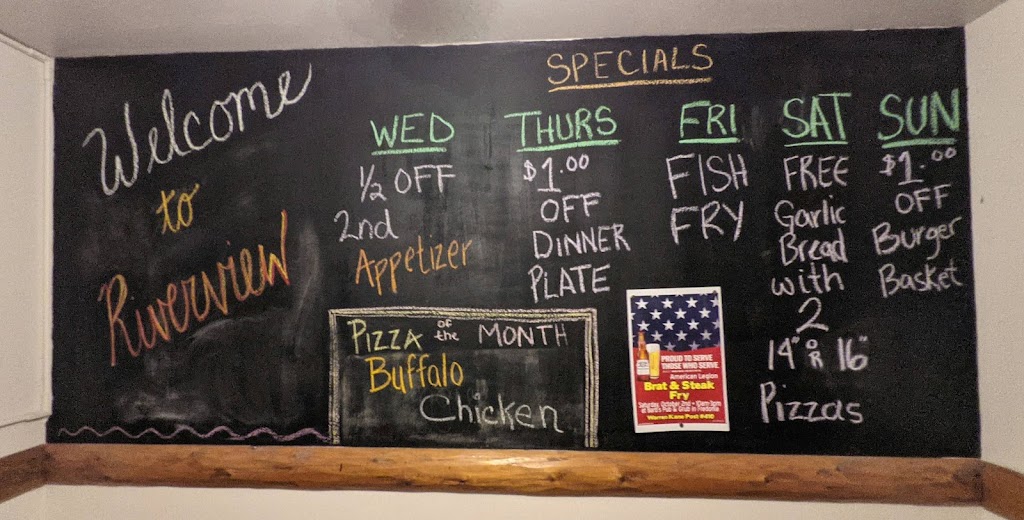 Welcome
to
Riverview
SPECIALS
WED
1/2 OFF
2nd
Appetizer
THURS
$1.00
OFF
DINNER
PLATE
FRI
FISH
FRY
SAT
FREE
Garlic
Bread
with
2
14" OR 16"
Pizzas
SUN
$1.00
OFF
Burger
Basket
PIZZA of the MONTH
Buffalo
Chicken
PROUD TO SERVE
THOSE WHO SERVE
American Legion
Brat & Steak
Fry
Saturday, October 2nd - 10am-3pm
at Bart's Pub & Grub in Fredonia
Warren Kane Post #410